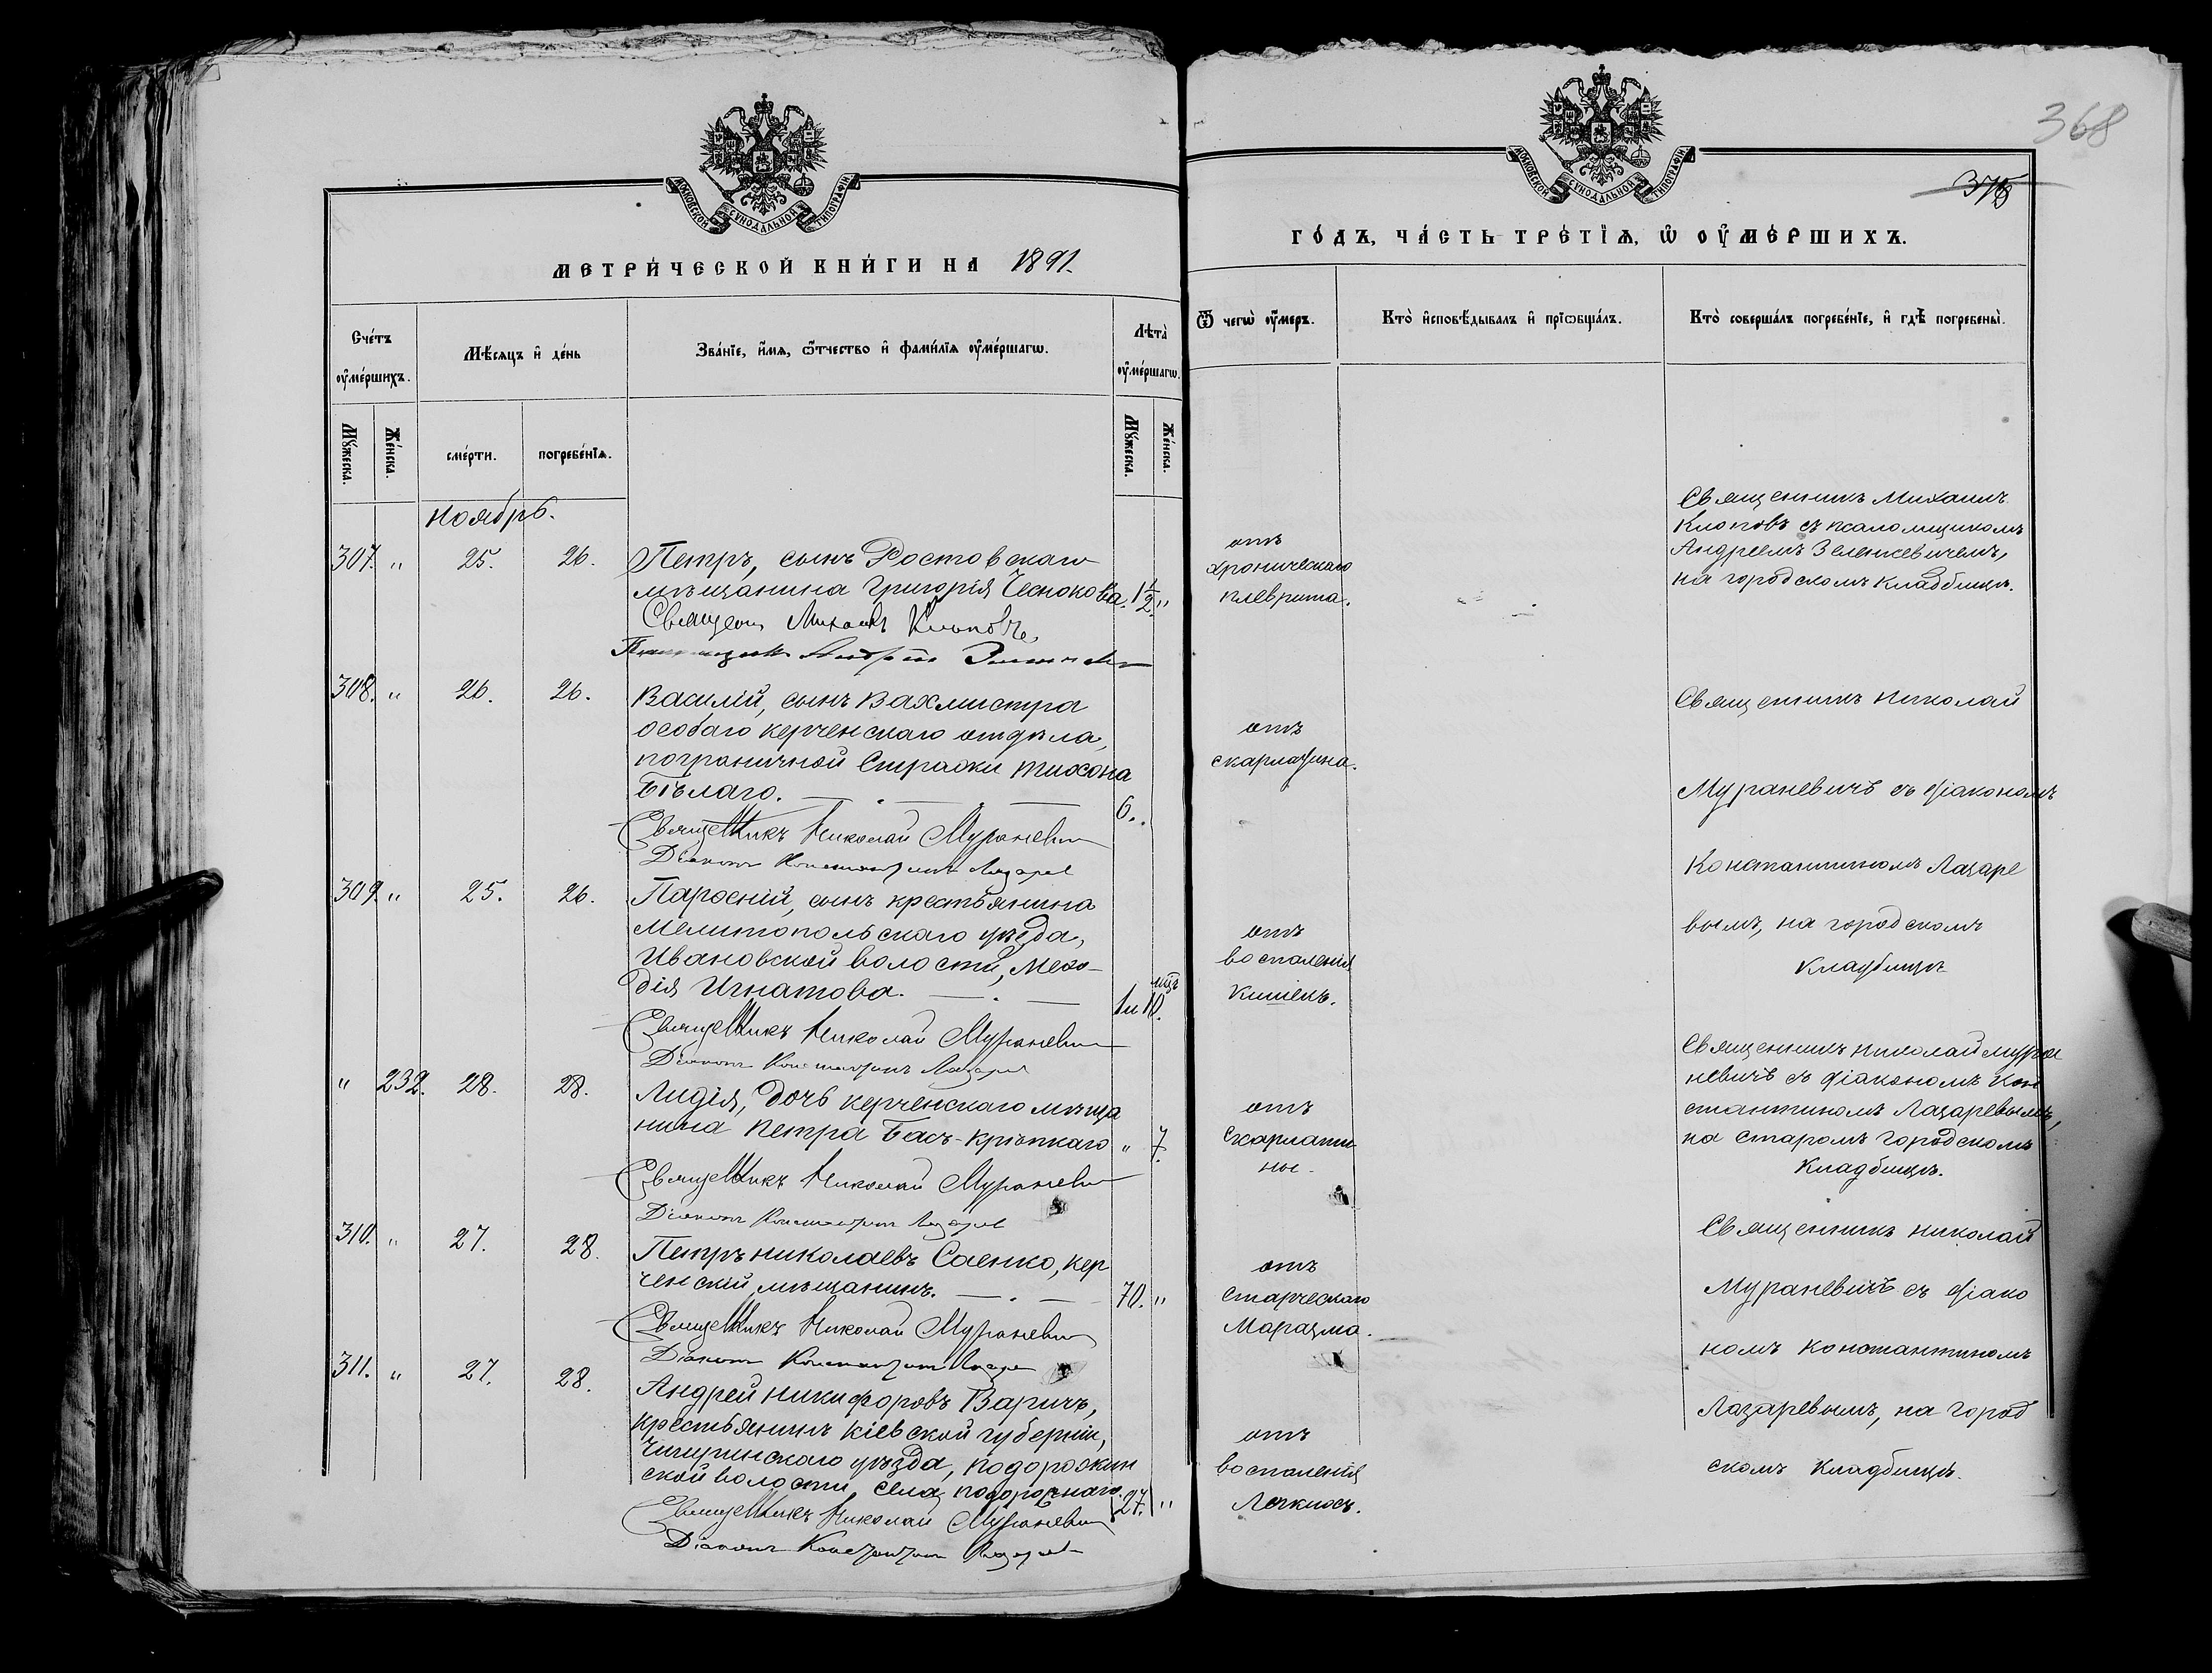 МОСКОВСКОЙ СУНОДАЛЬНОЙ ТИПОГРАФІИ
МЕТРИ́ЧЕСКОЙ КНИ́ГИ НА 1891.
Сче́тъ ᲂу҆ме́ршихъ.
Мѣ́сяцъ и҆ де́нь
Зва́нїе, и҆́мѧ, ѻ҆́тчество и҆ фами́лїѧ ᲂу҆ме́ршагѡ.
Лѣта̀ ᲂу҆ме́ршагѡ.
Мꙋ́жеска.
Же́нска.
сме́рти.
погребе́нїѧ.
Мꙋ́жеска.
Же́нска.
Ноябрь.
307. " 25. 26.
Петръ, сынъ Ростовскаго
мѣщанина Григорія Чеснокова. 1 1/2. "
Священ Михаилъ Клоповъ
Андрей
308. " 26. 26.
Василій, сынъ Вахмистра
особаго керченскаго отдѣла,
пограничной Стражи Тихона
Бѣлаго. 6.
Священникъ Николай Мураневич
Діаконъ Константинъ Лазарев
309. " 25. 26.
Парѳеній, сынъ крестьянина
Мелитопольскаго уѣзда,
Ивановской волости, Меѳо-
дія Игнатова. 1 и 10. мцъ
Священникъ Николай Мураневич
Діаконъ Константинъ Лазарев
" 232. 28. 28.
Лидія, дочь керченскаго мѣща
нина Петра Басъ-Крѣпкаго " 7.
Священникъ Николай Мураневич
Діаконъ Константинъ Лазарев
310. " 27. 28.
Петръ Николаевъ Саенко, кер
ченскій мѣщанинъ. 70. "
Священникъ Николай Мураневич
Діаконъ Константинъ Лазарев
311. " 27. 28.
Андрей Никифоровъ Варичъ,
крестьянинъ Кіевской губерніи,
Чигиринскаго уѣзда, Подорожин
ской волости, села Подорожнаго. 27. "
Священникъ Николай Мураневич
Діаконъ Константинъ Лазарев
368
МОСКОВСКОЙ СУНОДАЛЬНОЙ ТИПОГРАФІИ
ГО́ДЪ, ЧА́СТЬ ТРЕ́ТЇѦ, Ѡ҆ ОУ҆МЕ́РШИХЪ.
Ѿ чегѡ̀ ᲂу҆́меръ.
Кто̀ и҆сповѣ́дывалъ и҆ прїѡбща́лъ.
Кто̀ соверша́лъ погребе́нїе, и҆ гдѣ̀ погребены̀.
отъ
хроническаго
плеврита.
Священникъ Михаилъ
Клоповъ съ псаломщикомъ
Андреемъ Зеленкевичемъ,
на городскомъ кладбищѣ.
отъ
скарлатина.
Священникъ Николай
Мураневичъ съ діакономъ
Константиномъ Лазаре
вымъ, на городскомъ
кладбищѣ
отъ
воспаленія
кишекъ.
отъ
Скарлати
ны.
Священникъ Николай Мура
невичъ съ діакономъ Кон
стантиномъ Лазаревымъ,
на старомъ городскомъ
кладбищѣ.
отъ
старческаго
Маразма.
Священникъ Николай
Мураневичъ съ діако
номъ Константиномъ
Лазаревымъ, на город
скомъ кладбищѣ.
отъ
воспаленія
Легкихъ.